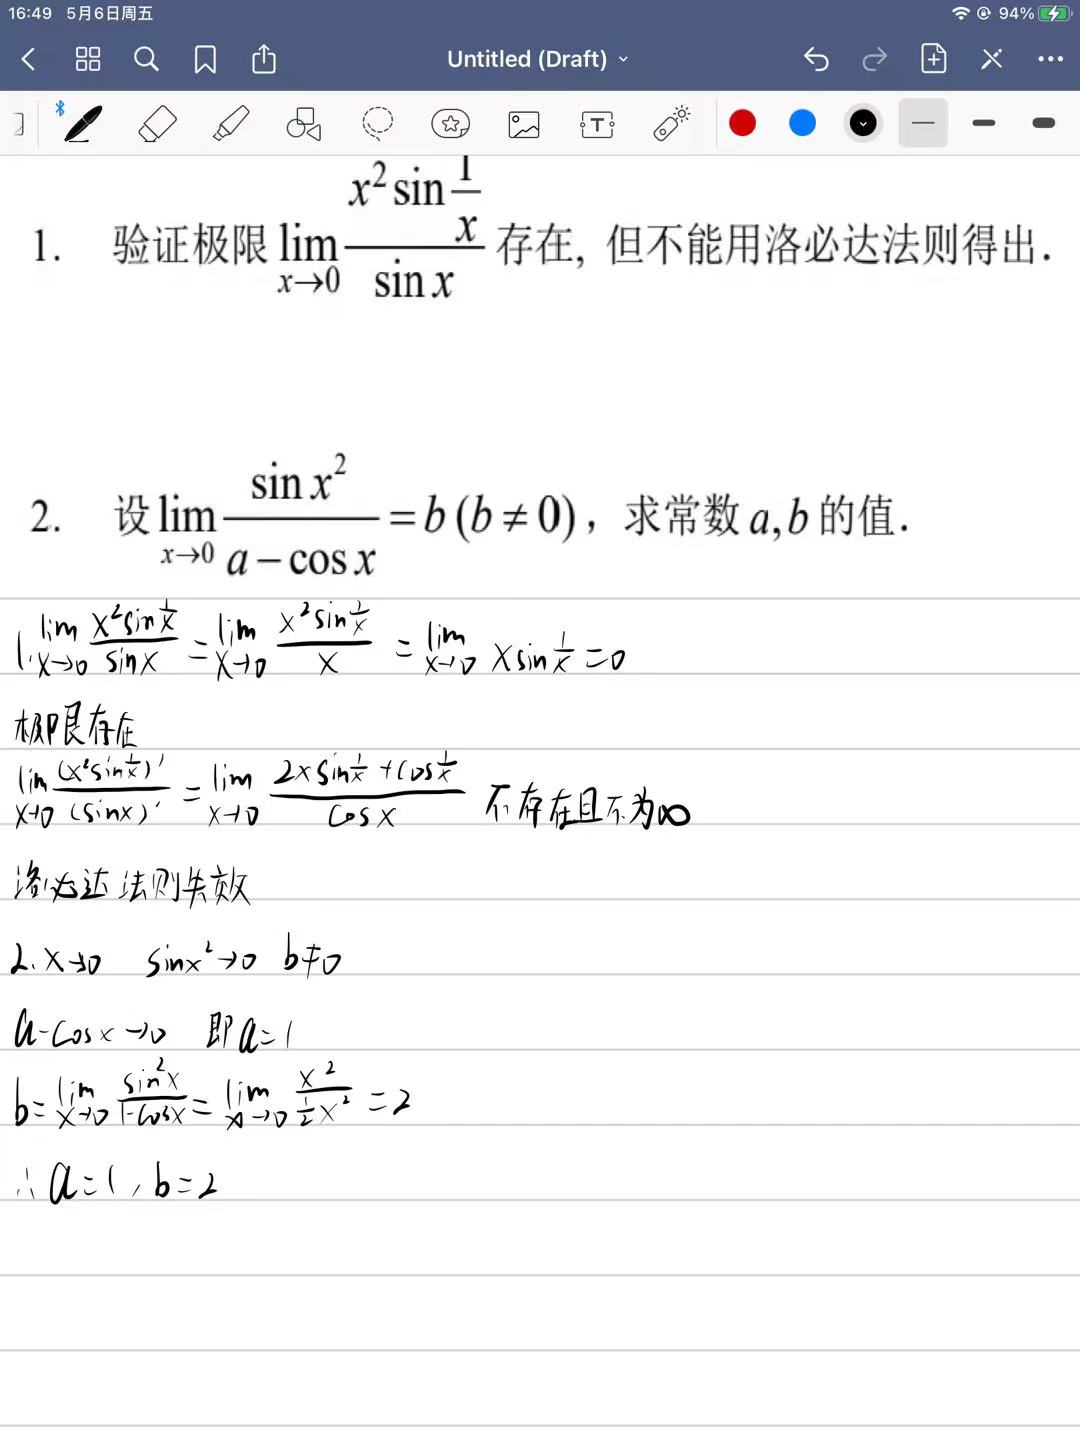 16:49 5月6日周五 94%
Untitled (Draft)
T
1. 验证极限 lim x→0 (x² sin 1/x)/(sin x) 存在, 但不能用洛必达法则得出.
2. 设 lim x→0 (sin x²)/(a − cos x) = b (b ≠ 0), 求常数 a, b 的值.
1. lim x→0 (x² sin 1/x)/(sin x) = lim x→0 (x² sin 1/x)/x = lim x→0 x sin 1/x = 0
极限存在
lim x→0 (x² sin 1/x)'/(sin x)' = lim x→0 (2x sin 1/x + cos 1/x)/(cos x) 不存在且不为∞
洛必达法则失效
2. x→0 sin x²→0 b≠0
a-cos x→0 即a=1
b= lim x→0 (sin² x)/(1-cos x) = lim x→0 x²/(1/2 x²) = 2
∴ a=1, b=2